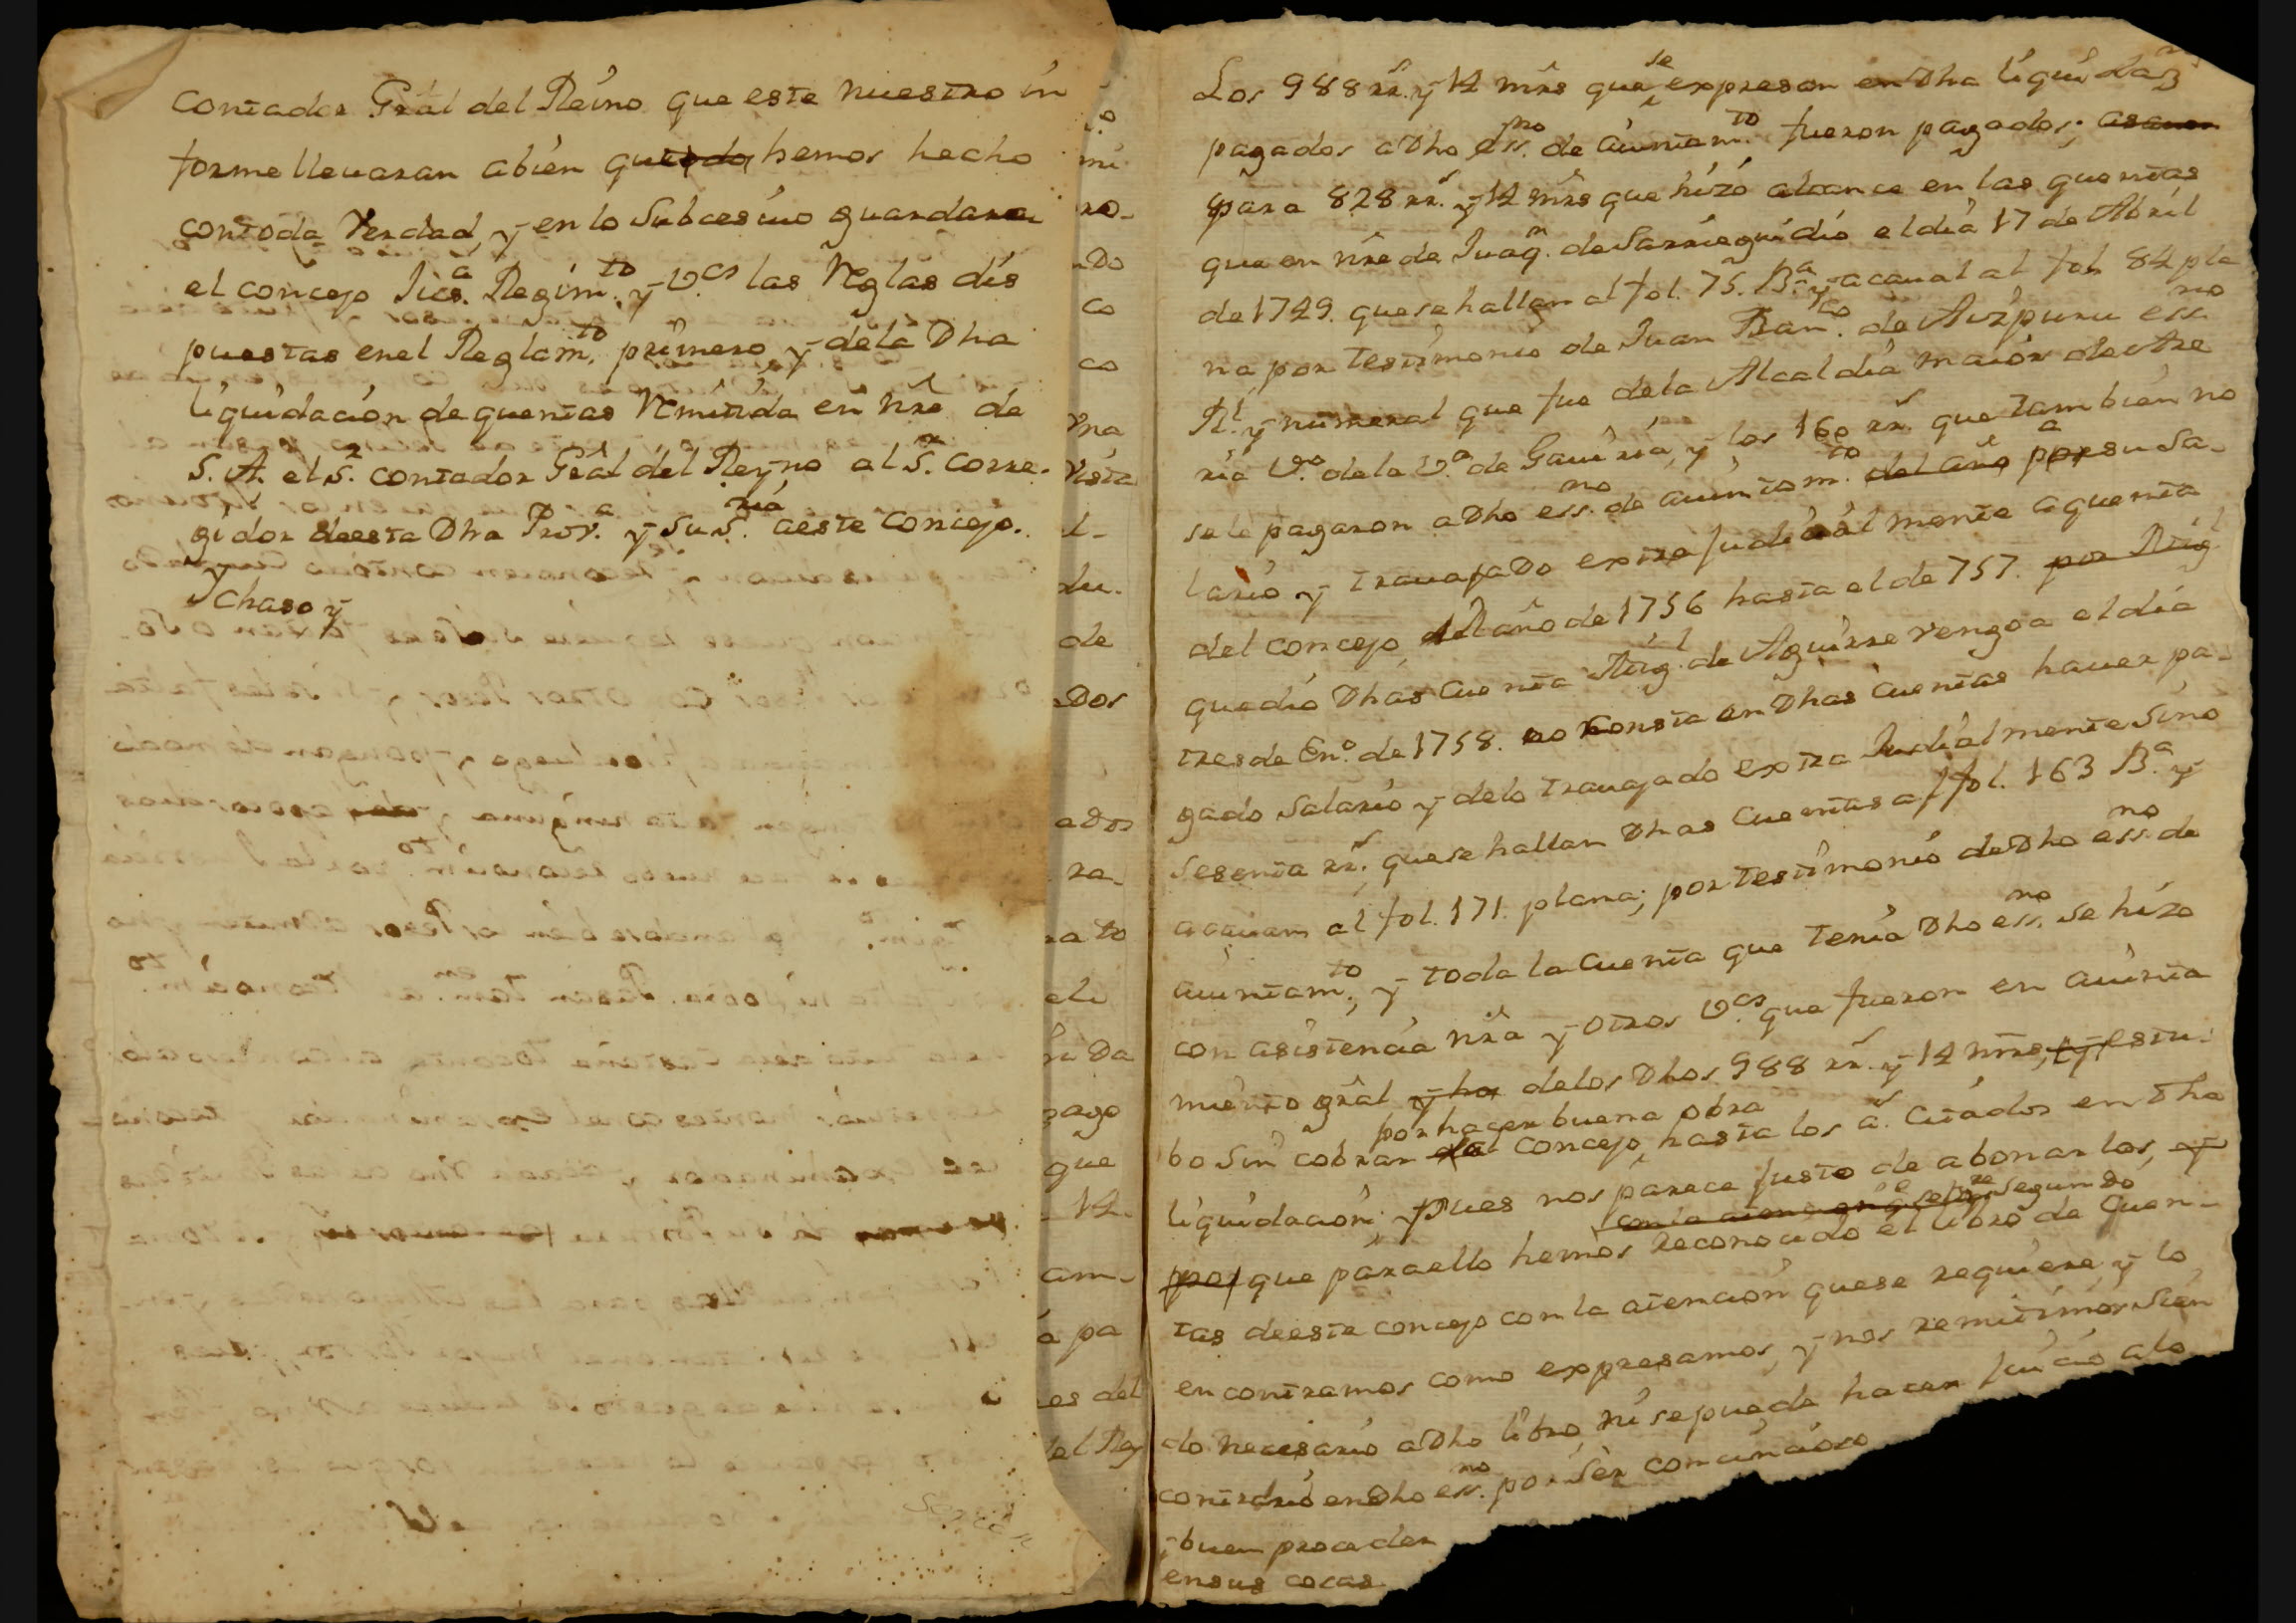 contador Gral del Reino que este nuestro in
forme llevaran abien que hemos hecho
contoda Verdad, y en lo Subcesivo guardara
el concejo Jusa. Regimto. y Vcs las Reglas dis
puestas enel Reglamto. primero y dela Dha
liquidacion de quentas Remitida en nre de
S. A. el Sr. contador Gral del Reyno al Sr. Corre-
gidor deesta Dha Prova. y su Sria aeste Concejo.
y
chaso y
mi
ro-
nDo
co
co
Vna
Vista
l-
du-
de
Dos
aDos
ra-
ato
ele
Da
pago
que
14-
am-
a pa
es del
el Rey
Los 988 rrs. y 14 mrs que se expreson en Dha liquidazn
pagados aDho essno. de aiuntamto. fueron pagados; asauer
para 828 rrs. y 14 mrs que hizo alcance en las quentas
que en nre de Juaqn. de Sarriegui dio el dia 17 de Abril
de 1749. que se hallan al fol. 75. Ba. y acaual al fol. 84 pla
na por testimonio de Juan Banco. de Aizpuru essno
Rl. y numeral que fue dela Alcaldia maior de Are
ria Vo. dela Va. de Gauiria, y los 160 rrs. que tambien no
sele pagaron aDho essno. de aiuntamto. del año por su Sa-
lario y trauajaDo extrajudicialmente aquenta
del concejo, del año de 1756 hasta el de 757. por Migl
quedio Dhas Cuenta Migl. de Aguirre rengoa el dia
tres de Eno. de 1758. no Consta en Dhas Cuentas hauer pa-
gado Salario y delo trauajado extra Judialmente Sino
Sesenta rrs. que se hallan Dhas Cuentas al fol. 163 Ba. y
acauan al fol. 171. plana; por testimonio deDho essno. de
aiuntamto. y toda la Cuenta que tenia Dho essno. se hizo
con asistencia nra y otros Vcs. que fueron en aiunta
miento gral y ho delos Dhos 988 rrs. y 14 mrs, y estu-
por hacer buena obra
bo Sin cobrar del Concejo, hasta los as. Citados en Dha
liquidacion; Pues nos parece Justo de abonarlos, y
segundo
por que para ello hemos Reconocido el libro de Quen-
tas deeste concejo con la atencion que se requiere y lo
encontramos como expresamos, y nos remitimos Sien
do necesario aDho libro, ni se pueda hacer Juicio alo
contrario en Dho essno. por Ser concincioso
y buen proceder
ensus cosas